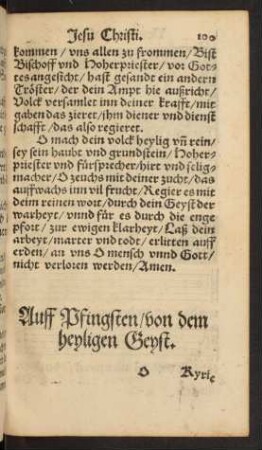 Jesu Christi. 100
kommen / vns allen zu frommen / Bist
Bischoff vnd Hoherpriester / vor Got-
tes angesicht / hast gesandt ein andern
Tröster / der dein Ampt hie außricht /
Volck versamlet inn deiner krafft / mit
gaben das zieret / jhm diener vnd dienst
schafft / das also regieret.
O mach dein volck heylig vñ rein /
sey sein haubt vnd grundstein / Hoher-
priester vnd fürsprecher / hirt vnd selig-
macher / O zeuchs mit deiner zucht / das
auffwachs inn vil frucht / Regier es mit
deim reinen wort / durch dein Geyst der
warheyt / vnnd für es durch die enge
pfort / zur ewigen klarheyt / Laß dein
arbeyt / marter vnd todt / erlitten auff
erden / an vns O mensch vnnd Gott /
nicht verloren werden / Amen.
Auff Pfingsten / von dem
heyligen Geyst.
O Kyrie